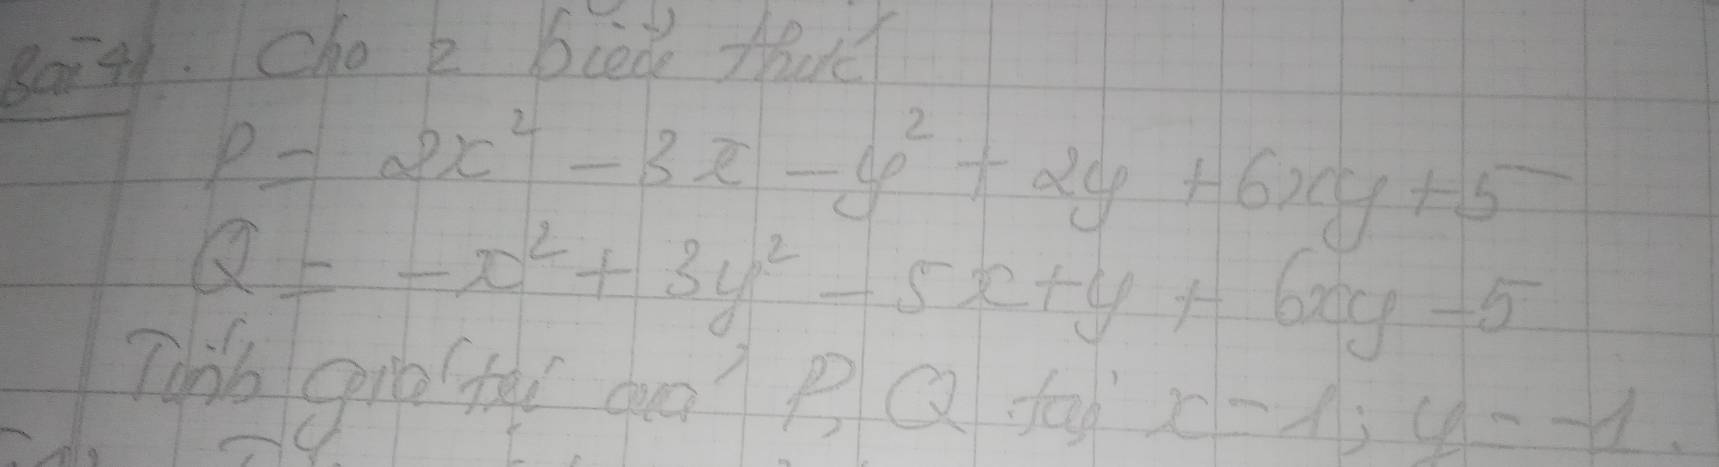 Bài 4. Cho 2 biểu thức
P = 2x² - 3x - y² + 2y + 6xy + 5
Q = - x² + 3y² - 5x + y + 6xy - 5
Tính giá trị của P, Q tại x = 1; y = -1.